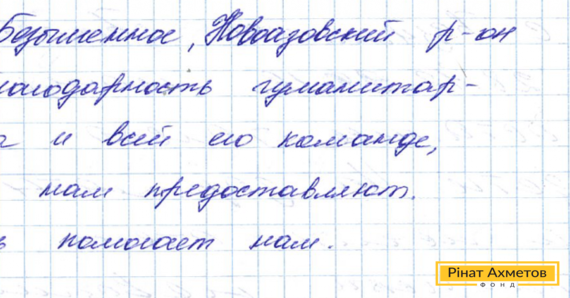 Безыменное, Новоазовский р-он
благодарность гуманитар-
и всей его команде,
нам предоставляют.
помогает нам.
Рінат Ахметов
ФОНД